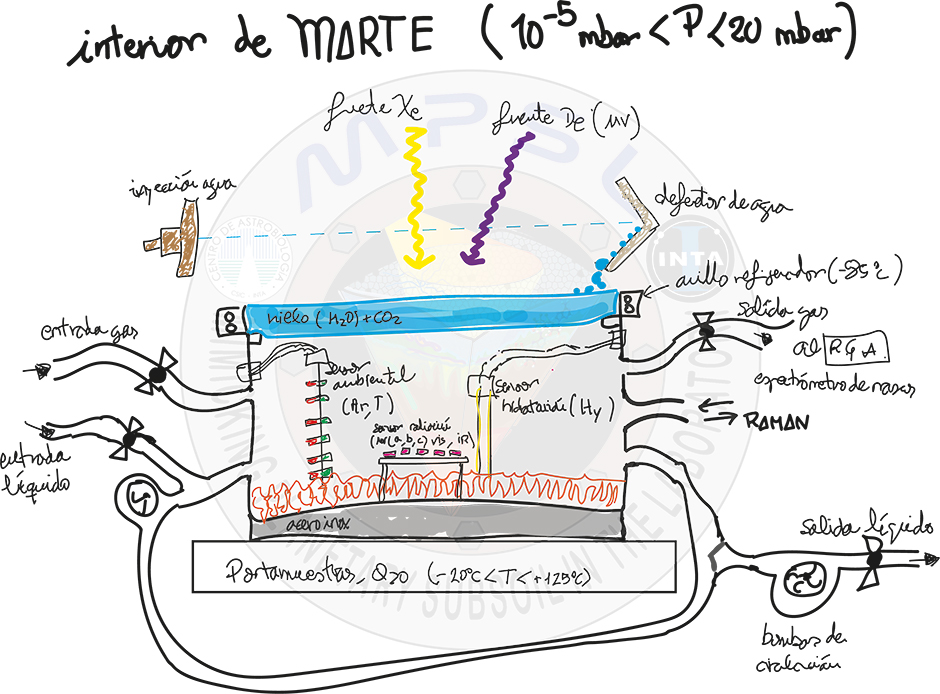 interior de MARTE (10⁻⁵ mbar < P < 20 mbar)
fuete Xe
fuente De (UV)
inyección agua
defector de agua
anillo refrigerador (-85ºC)
hielo (H2O) + CO2
entrada gas
salida gas
al R.G.A.
espectrómetro de masas
sensor
ambiental
(Ar, T)
sensor
hidratación (Hy)
sensor radiación
(UV(a, b, c) vis, iR)
RAMAN
entrada
líquido
acero inox
Portamuestras, Q>0 (-20ºC < T < +125ºC)
salida líquido
bombas de
MPSL
CENTRO DE ASTROBIOLOGIA
INTA
PLANETARY SUBSOIL IN THE LABORATORY